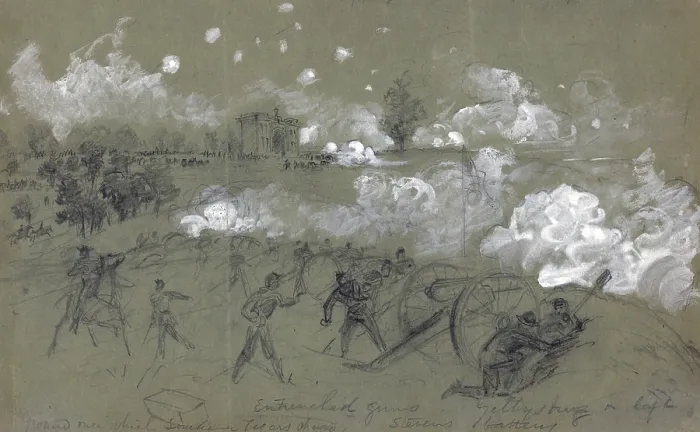 Entrenched guns Gettysburg left
Ground over which Louisiana Tigers Stevens Battery